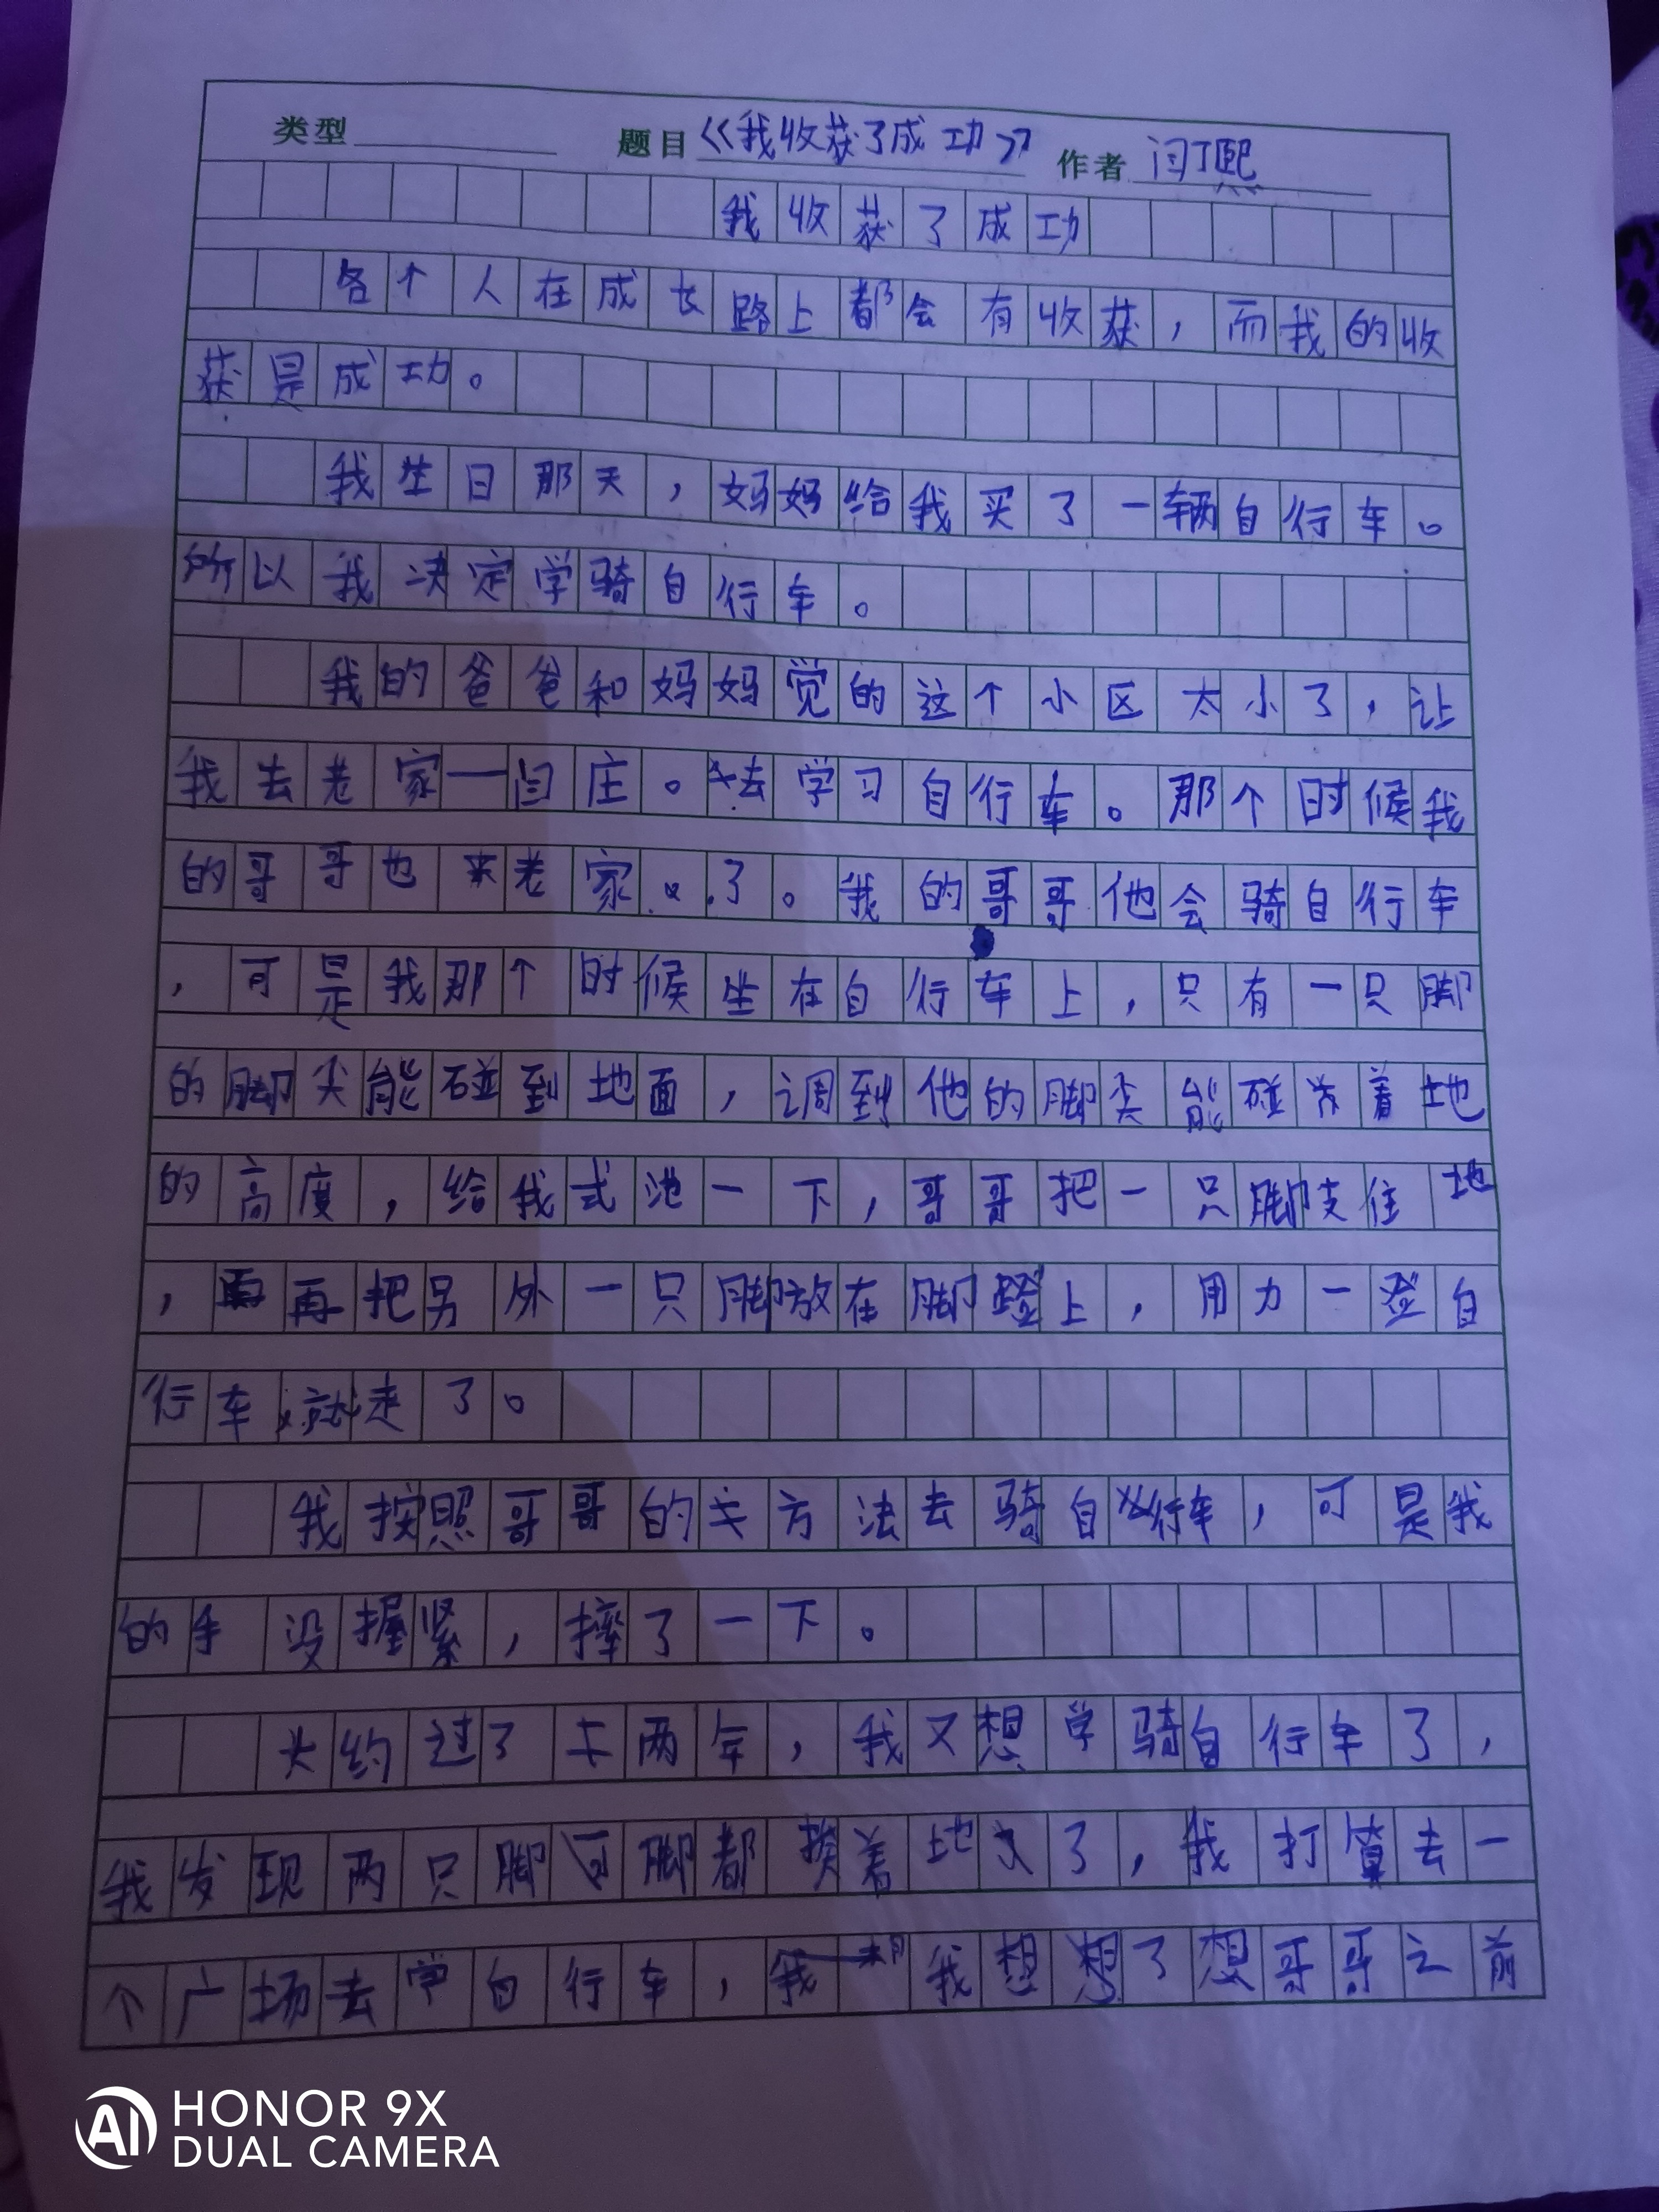 类型 题目《我收获了成功》 作者 闫丁熙
我收获了成功
各个人在成长路上都会有收获，而我的收
获是成功。
我生日那天，妈妈给我买了一辆自行车。
所以我决定学骑自行车。
我的爸爸和妈妈觉的这个小区太小了，让
我去老家一闫庄。去学习自行车。那个时候我
的哥哥也来老家了。我的哥哥他会骑自行车
，可是我那个时候坐在自行车上，只有一只脚
的脚尖能碰到地面，调到他的脚尖能碰着地
的高度，给我式池一下，哥哥把一只脚支住地
，再把另外一只脚放在脚蹬上，用力一登自
行车就走了。
我按照哥哥的方法去骑自行车，可是我
的手没握紧，摔了一下。
大约过了两年，我又想学骑自行车了，
我发现两只脚都挨着地了，我打算去一
个广场去学自行车，我想了想哥哥之前
HONOR 9X
DUAL CAMERA